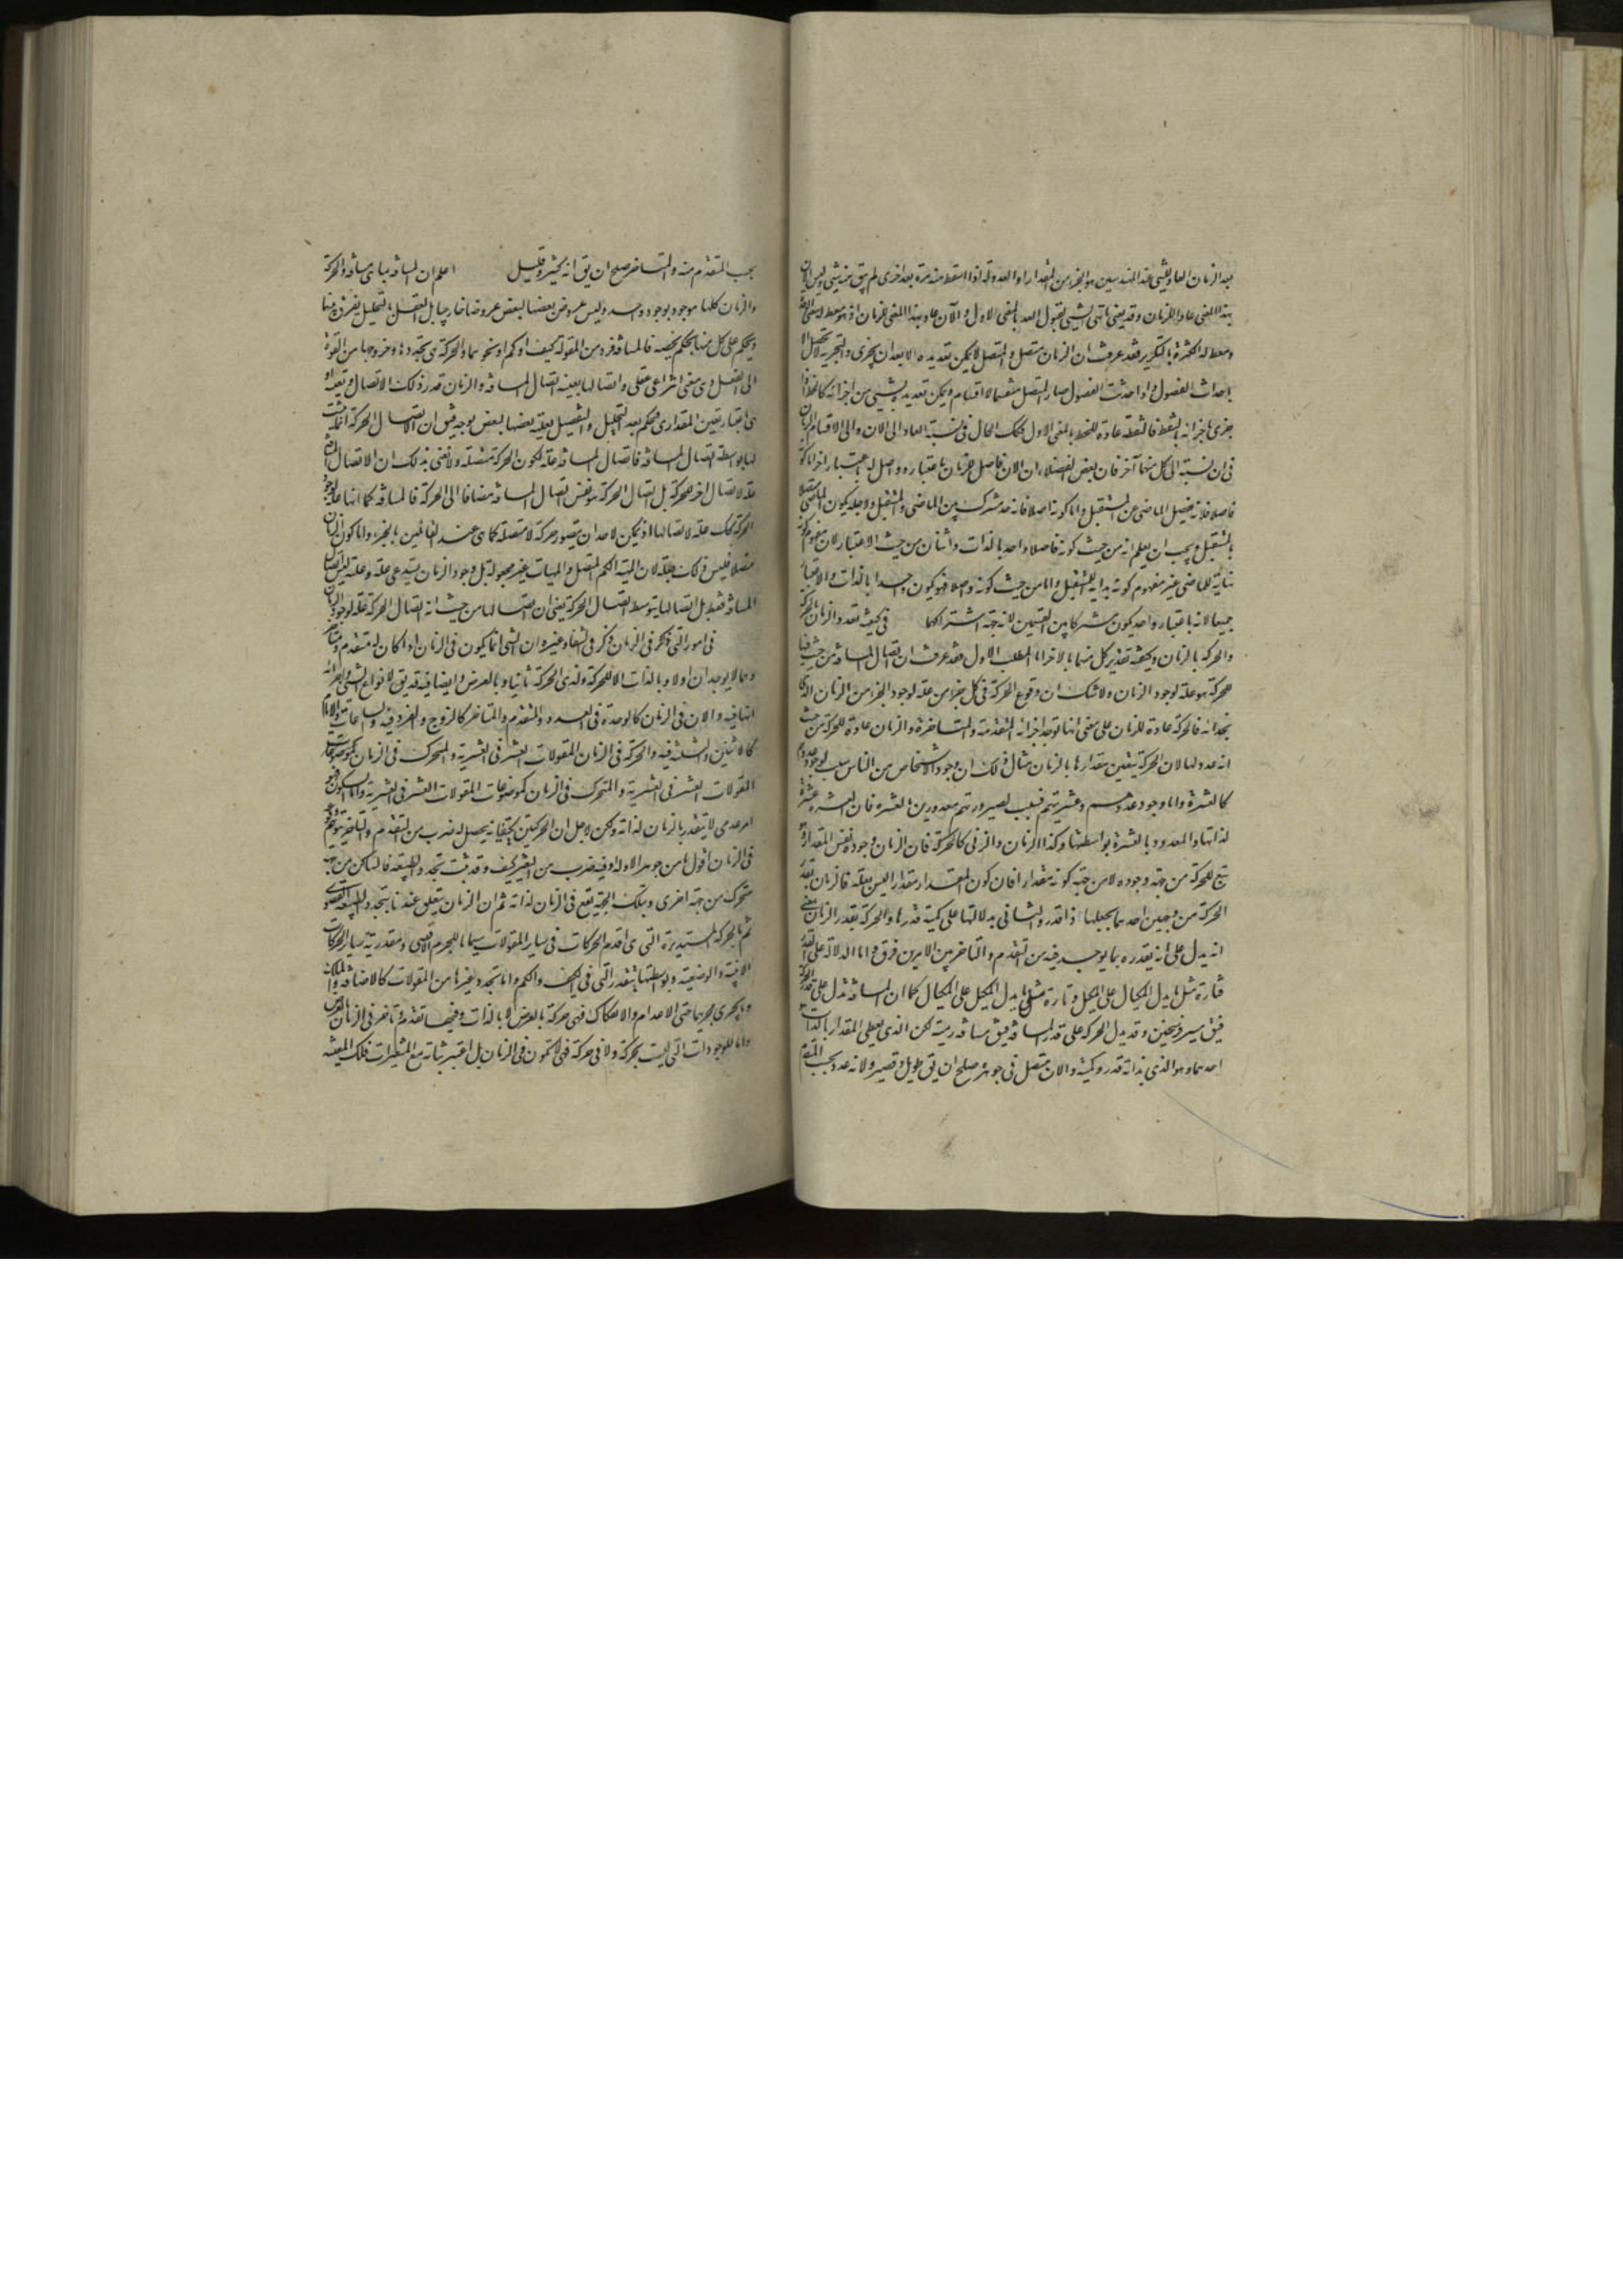 بعد الزمان العاد للشيء عند المهندسين هو الجزء من المقدار او العدد الذي اذا اسقط منه مرة بعد اخرى لم يبق منه شيء وليس الآن
بهذا المعنى عادا للزمان وقد يعنى بالشيء لقبول العد بالمعنى الاول والآن عاد بهذا المعنى للزمان اذ هو معط له معنى الوحدة
ومعط له الكثرة بالتكرير فقد عرفت ان الزمان متصل والمتصل لا يمكن تعديده الا بعد ان يجزى والتجزية لا تحصل الا
باحداث الفصول واذا حدثت الفصول صار المتصل منقسما لاقسام ويمكن تعديده بشيء من اجزائه كالخط اذا
جزى باجزائه بالنقط فالنقطة عادة للخط بالمعنى الاول فكذلك الحال في نسبة العاد الى الان والى الاقسام الزمان
في ان نسبته الى كل منهما آخر فان بعض الفضلاء ان الان فاصل للزمان باعتبار وواصل له باعتبار اخر اما كونه
فاصلا فلانه يفصل الماضي عن المستقبل واما كونه واصلا فانه حد مشترك بين الماضي والمستقبل ولاجله يكون الماضي متصلا
بالمستقبل ويجب ان يعلم انه من حيث كونه فاصلا واحد بالذات واثنان من حيث الاعتبار لان مفهوم كونه
نهاية للماضي غير مفهوم كونه بداية للمستقبل واما من حيث كونه واصلا فهو يكون واحدا بالذات والاعتبار
جميعا لانه باعتبار واحد يكون مشتركا بين القسمين لانه جهة اشتراكهما في كيفية تعدد الزمان بالحركة
والحركة بالزمان وكيفية تقدير كل منهما بالاخر اما المطلب الاول فقد عرفت ان اتصال المسافة من حيث فيها
للحركة هو علة لوجود الزمان ولا شك ان وقوع الحركة في كل جزء من علة لوجود الجزء من الزمان الذي
بحذائه فالحركة عادة للزمان على معنى انها توجد اجزائه المتقدمة والمتاخرة والزمان عادة للحركة من حيث
انه عدد لها لان الحركة يتعين مقدارها بالزمان مثال ذلك ان وجود الاشخاص من الناس سبب لوجود عددهم
كالعشرة واما وجود عددهم وعشريتهم فسبب لصيرورتهم معدودين بالعشرة فان العشرة عشرة
لذاتها والمعدود بالعشرة بواسطتها وكذا الزمان والذي كالحركة فان الزمان وجوده نفس المقدار هو
يتبع للحركة من جهة وجوده لا من جهة كونه مقدارا فان كون المقدار مقدارا ليس بعلة فالزمان يقدر
الحركة من وجهين احدهما بجعلها ذا قدر والثاني بدلالتها على كمية قدرها والحركة بقدر الزمان بمعنى
انه يدل على انه بقدره بما يوجد فيه من المتقدم والمتاخر بين الامرين فرق واما الدلالة على القدر
فتارة مثل ما يدل المكيال على المكيل وتارة مثل ما يدل المكيل على المكيال كما ان المسافة تدل على قدر الحركة
فيق مسير فرسخين وقد يدل الحركة على قدر المسافة فيق مسافة رمية لكن الذي يعطي المقدار بالذات هو
احدهما وهو الذي بذاته قدر وكمية والان متصل في جوهره صلح ان يق طويل وقصير ولانه عدد بحسب المتقدم
بحسب المتقدم منه والمتاخر صلح ان يق انه كثير وقليل اعلم ان المسافة بما هي مسافة والحركة
والزمان كلها موجود بوجود واحد وليس عروض بعضها لبعض عروضا خارجيا بل العقل بالتحليل يفرق بينها
ويحكم على كل منها بحكم يخصه فالمسافة فرد من المقولة كيف او كم او نحوهما والحركة هي تجددها وخروجها من القوة
الى الفعل وهي معنى انتزاعي عقلي واتصالها بعينه اتصال المسافة والزمان قدر ذلك الاتصال وتعينه او
هي اعتبار تعين المقداري فحكم بعد التحليل والتفصيل بعلية بعضها لبعض بوجه فيق ان الاتصال الحركة انما يثبت
لها بواسطة اتصال المسافة فاتصال المسافة علة لكون الحركة متصلة ولا نعنى بذلك ان الاتصال المسافة
علة لاتصال اخر للحركة بل اتصال الحركة هو نفس اتصال المسافة مضافا الى الحركة فالمسافة كما انها علة لوجود
الحركة كك علة لاتصالها اذ يمكن لاحد ان يتصور حركة لا متصلة كما هي عند القائلين بالجزء واما كون الزمان
متصلا فليس ذلك بعلة لان الهية الكم المتصل والهيات غير مجعولة بل وجود الزمان يستدعي علة وعلته ليس اتصال
المسافة فقط بل اتصالها بتوسط اتصال الحركة يعنى ان اتصالها من حيث انه اتصال الحركة علة لوجود الزمان
في امور التي ذكر في الزمان ذكر في الشفاء وغيره ان الشيء انما يكون في الزمان اذا كان له متقدم ومتاخر
وهما لا يوجدان اولا وبالذات الا للحركة ولذي الحركة ثانيا وبالعرض وايضا فيه قد يق لانواع الشيء واجزائه
انها فيه والان في الزمان كالوحدة في العدد والمتقدم والمتاخر كالزوج والفرد فيه والساعات والايام
كالاثنين والثلثة فيه والحركة في الزمان المقولات العشر في العشرية والمتحرك في الزمان كموضوعات
المقولات العشر في العشرية والمتحرك في الزمان كموضوعات المقولات العشر في العشرية واما السكون فهو
امر عدمي لا يتقدر بالزمان لذاته ولكن لاجل ان الحركتين يكتنفانه يحصل له ضرب من التقدم والتاخر فيتوهم وقوعه
في الزمان اقول ما من جوهر الا وله او فيه ضرب من التغير كيف وقد ثبت تجدد الطبيعة فالساكن من جهة
متحرك من جهة اخرى وبتلك الجهة يقع في الزمان لذاته ثم ان الزمان يتعلق عندنا بتجدد الطبيعة القصوى
ثم بالحركة المستديرة التي هي اقدم الحركات في ساير المقولات سيما ما للجرم الاقصى ويتقدر به ساير الحركات
الاينية والوضعية وبواسطتها يتقدر التي في الكيف والكم واما تجدد غيرها من المقولات كالاضافة والملك
وما يجري مجريها حتى الاعدام والامكانات فهي حركة بالعرض لا بالذات وفيها تقدم وتاخر في الزمان بالعرض
واما الموجودات التي ليست بحركة ولا في حركة فهي لا تكون في الزمان بل اعتبر ثباته مع المتغيرات فتلك المعية